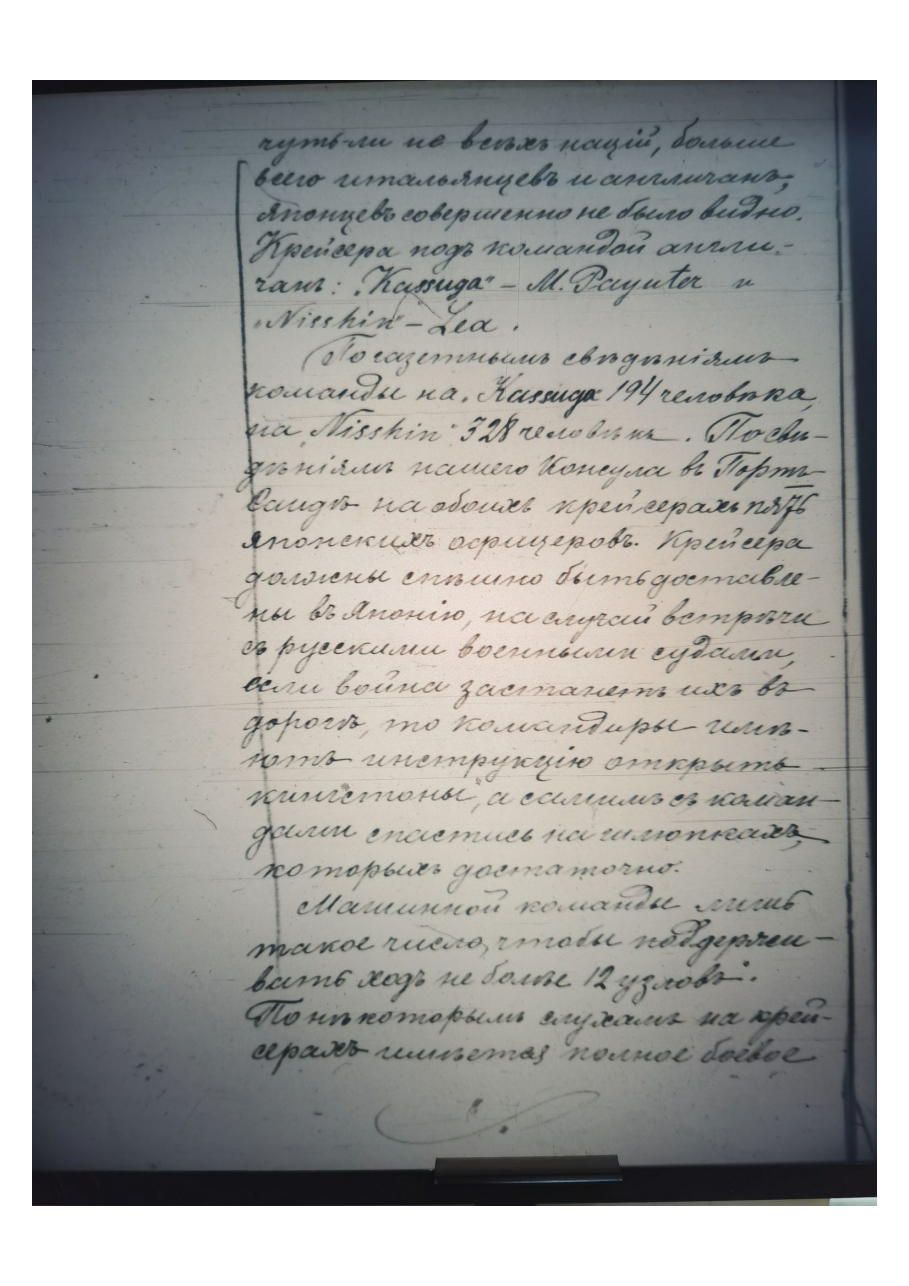 чуть-ли не всѣхъ націй, больше
всего итальянцевъ и англичанъ,
японцевъ совершенно не было видно.
Крейсера подъ командой англи-
чанъ: „Kassuga" – M. Paynter и
„Nisshin" – Lea.
По газетнымъ свѣдѣніямъ
команды на „Kassuga 194 человѣка,
на „Nisshin" 328 человѣкъ. По свѣ-
дѣніямъ нашего Консула въ Портъ
Саидѣ на обоихъ крейсерахъ пять
японскихъ офицеровъ. Крейсера
должны спѣшно быть доставле-
ны въ Японію, на случай встрѣчи
съ русскими военными судами,
если война застанетъ ихъ въ
дорогѣ, то командиры имѣ-
ютъ инструкцію открыть
кингстоны", а самимъ съ коман-
дами спастись на шлюпкахъ,
которыхъ достаточно.
Машинной команды лишь
такое число, чтобы поддержи-
вать ходъ не болѣе 12 узловъ.
По нѣкоторымъ слухамъ на крей-
серахъ имѣется полное боевое